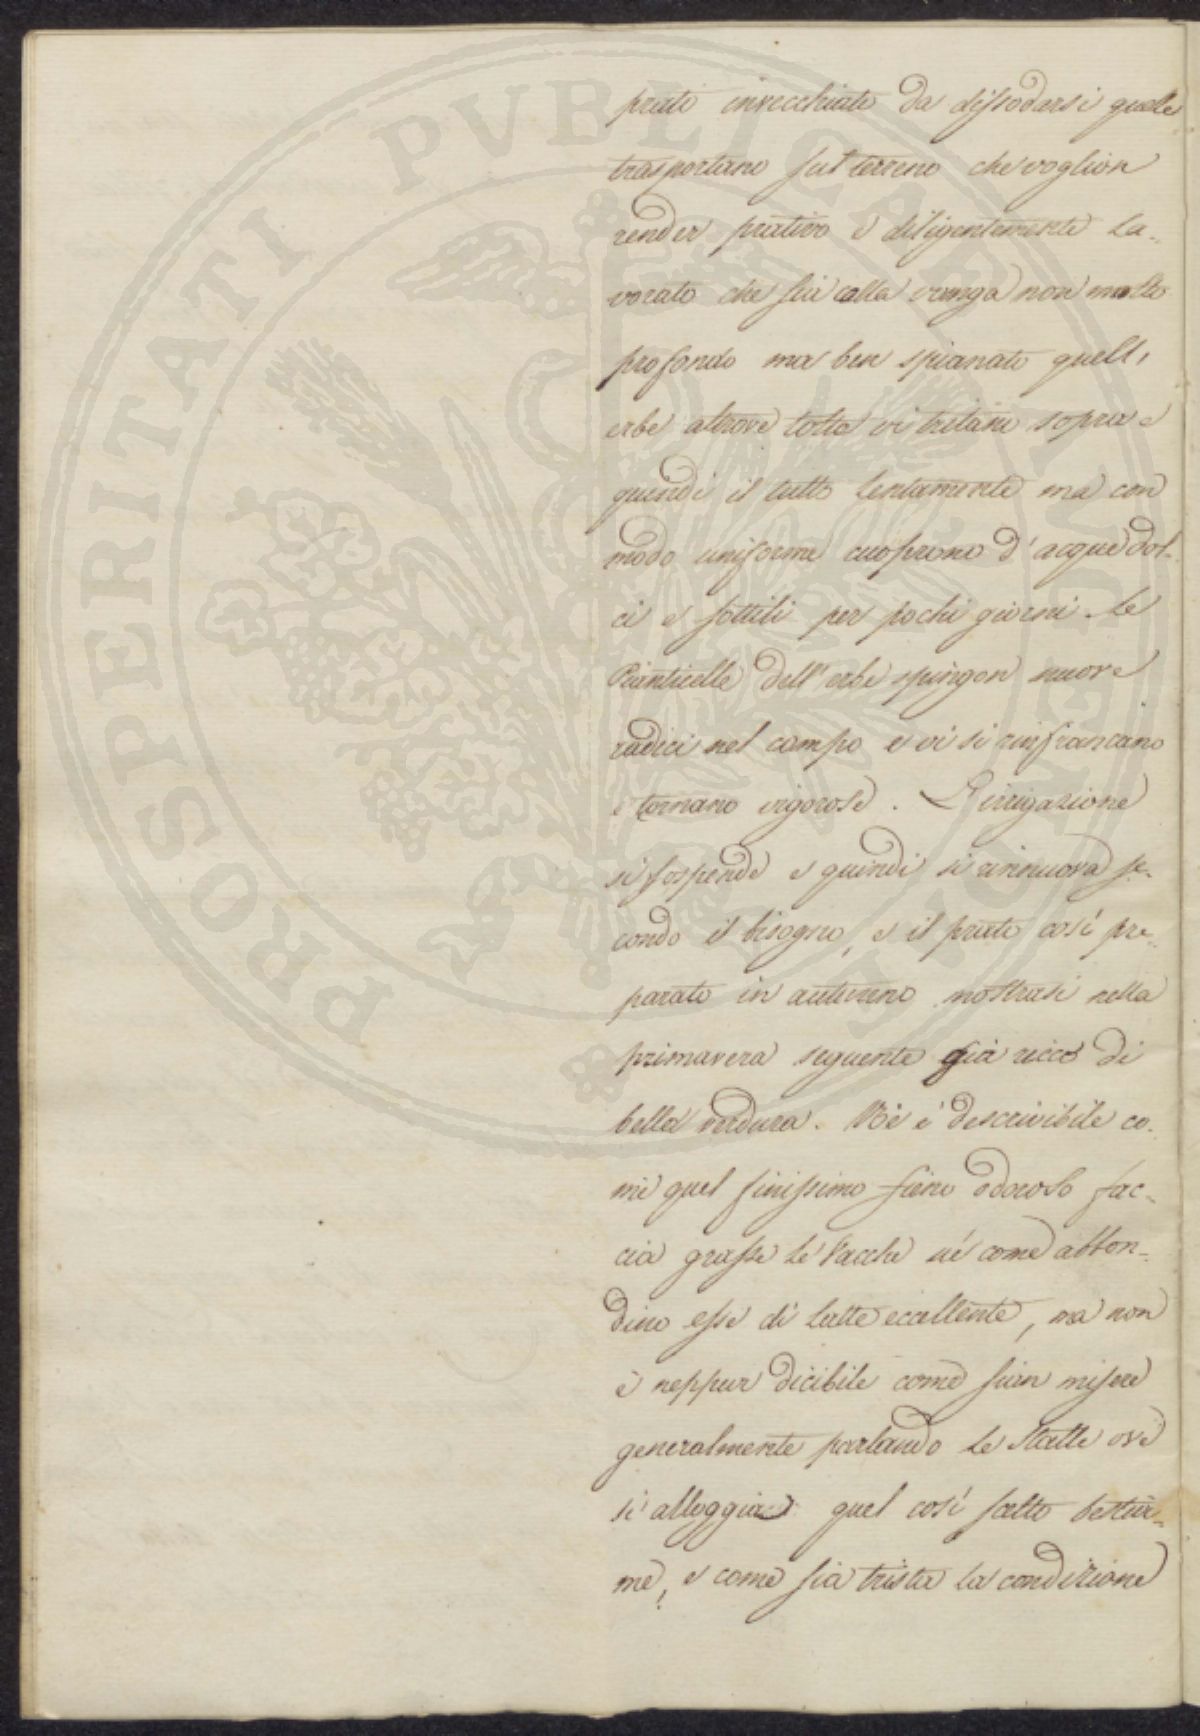 prati invecchiati da dissodarsi quale
trasportano sul terreno che voglion
render prativo e diligentemente la-
vorato che sia colla vanga non molto
profondo ma ben spianato quell'
erbe altrove tolte vi tritano sopra e
quindi il tutto lentamente ma con
modo uniforme cuoprono d'acque dol-
ci e sottili per pochi giorni. Le
Pianticelle dell'erbe spingon nuove
radici nel campo e vi si rinfrancano
e tornano vigorose. L'irrigazione
si sospende e quindi si rinnuova se-
condo il bisogno, e il prato così pre-
parato in autunno mostrasi nella
primavera seguente già ricco di
bella verdura. Nè è descrivibile co-
me quel finissimo fieno odoroso fac-
cia grasse le Vacche nè come abbon-
dino esse di latte eccellente, ma non
è neppur dicibile come sian misere
generalmente parlando le Stalle ove
si alloggia quel così scelto bestia-
me, e come sia trista la condizione
PROSPERITATI PVBLICAE AVGENDAE